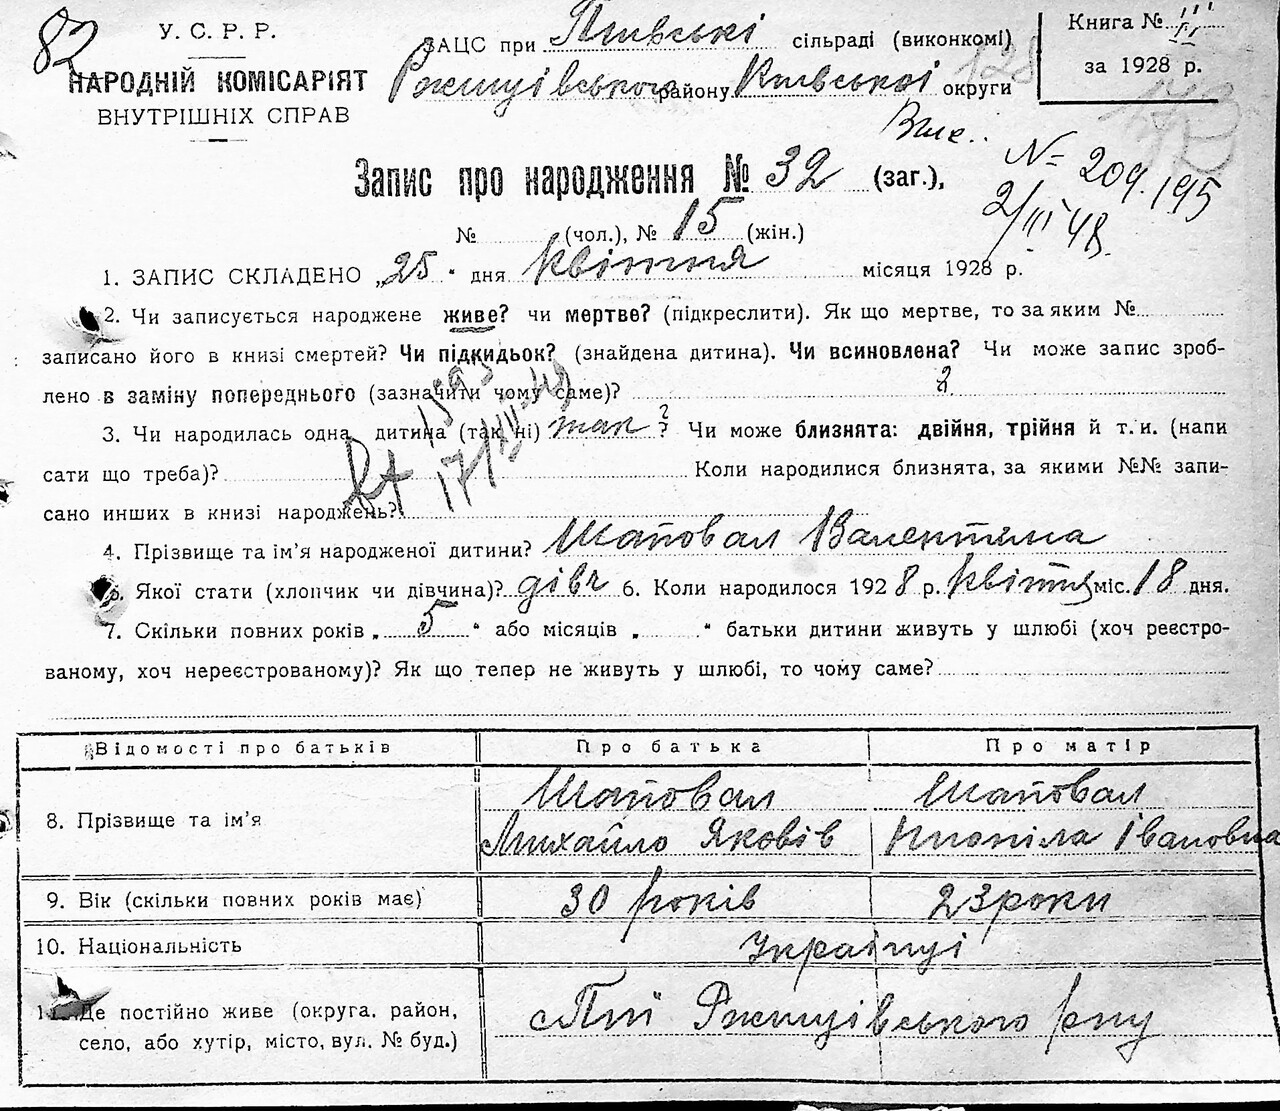 82
У. С. Р. Р.
НАРОДНІЙ КОМІСАРІЯТ
ВНУТРІШНІХ СПРАВ
ЗАЦС при Пиївські сільраді (виконкомі)
Ржищівського району Київської округи
Книга № III
за 1928 р.
128
173
№ 209.195
2/III 48.
Запис про народження № 32 (заг.),
№ (чол.), № 15 (жін.)
1. ЗАПИС СКЛАДЕНО „25" дня квітня місяця 1928 р.
2. Чи записується народжене живе? чи мертве? (підкреслити). Як що мертве, то за яким №
записано його в книзі смертей? Чи підкидьок? (знайдена дитина). Чи всиновлена? Чи може запис зроб-
лено в заміну попереднього (зазначити чому саме)? ?
3. Чи народилась одна дитина (так ні) так ? Чи може близнята: двійня, трійня й т. и. (напи
сати що треба)? Коли народилися близнята, за якими №№ запи-
сано инших в книзі народжень?
4. Прізвище та ім'я народженої дитини? Шаповал Валентина
5. Якої стати (хлопчик чи дівчина)? дівч 6. Коли народилося 1928 р. квітня міс. 18 дня.
7. Скільки повних років „ 5 " або місяців „ " батьки дитини живуть у шлюбі (хоч реєстро-
ваному, хоч нереєстрованому)? Як що тепер не живуть у шлюбі, то чому саме?
Відомості про батьків Про батька Про матір
8. Прізвище та ім'я Шаповал Михайло Яковів Шаповал Івановна
9. Вік (скільки повних років має) 30 років 23 роки
10. Національність Українці
11. Де постійно живе (округа, район,
село, або хутір, місто, вул. № буд.) с Пиї Ржищівського рну